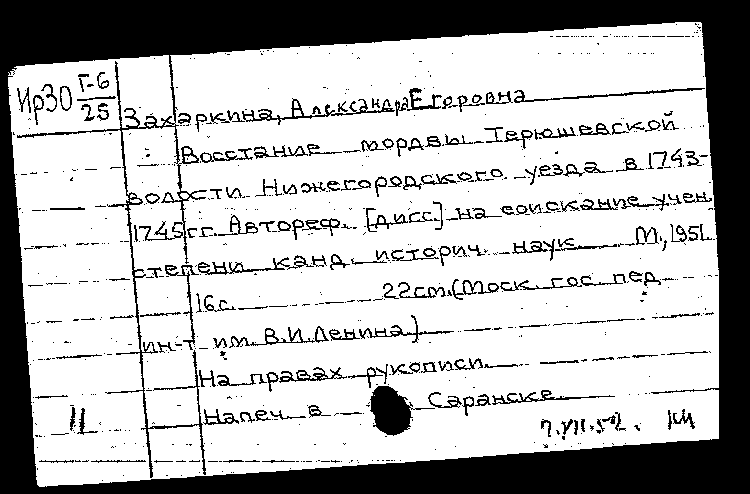 Ир30 Г-6
25
Захаркина, Александра Егоровна
Восстание мордвы Терюшевской
волости Нижегородского уезда в 1743-
1745 гг. Автореф. [дисс.] на соискание учен.
степени канд. историч. наук. М., 1951.
16 с. 22 см. (Моск. гос. пед.
ин-т им. В.И. Ленина)
На правах рукописи.
Напеч. в Саранске.
11
7.VII.52.